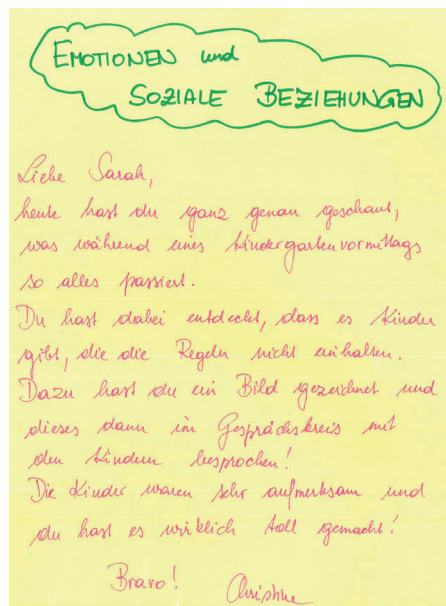 EMOTIONEN und
SOZIALE BEZIEHUNGEN
Liebe Sarah,
heute hast du ganz genau geschaut,
was während eines Kindergartenvormittags
so alles passiert.
Du hast dabei entdeckt, dass es Kinder
gibt, die die Regeln nicht einhalten.
Dazu hast du ein Bild gezeichnet und
dieses dann im Gesprächskreis mit
den Kindern besprochen!
Die Kinder waren sehr aufmerksam und
du hast es wirklich toll gemacht!
Bravo! Christine